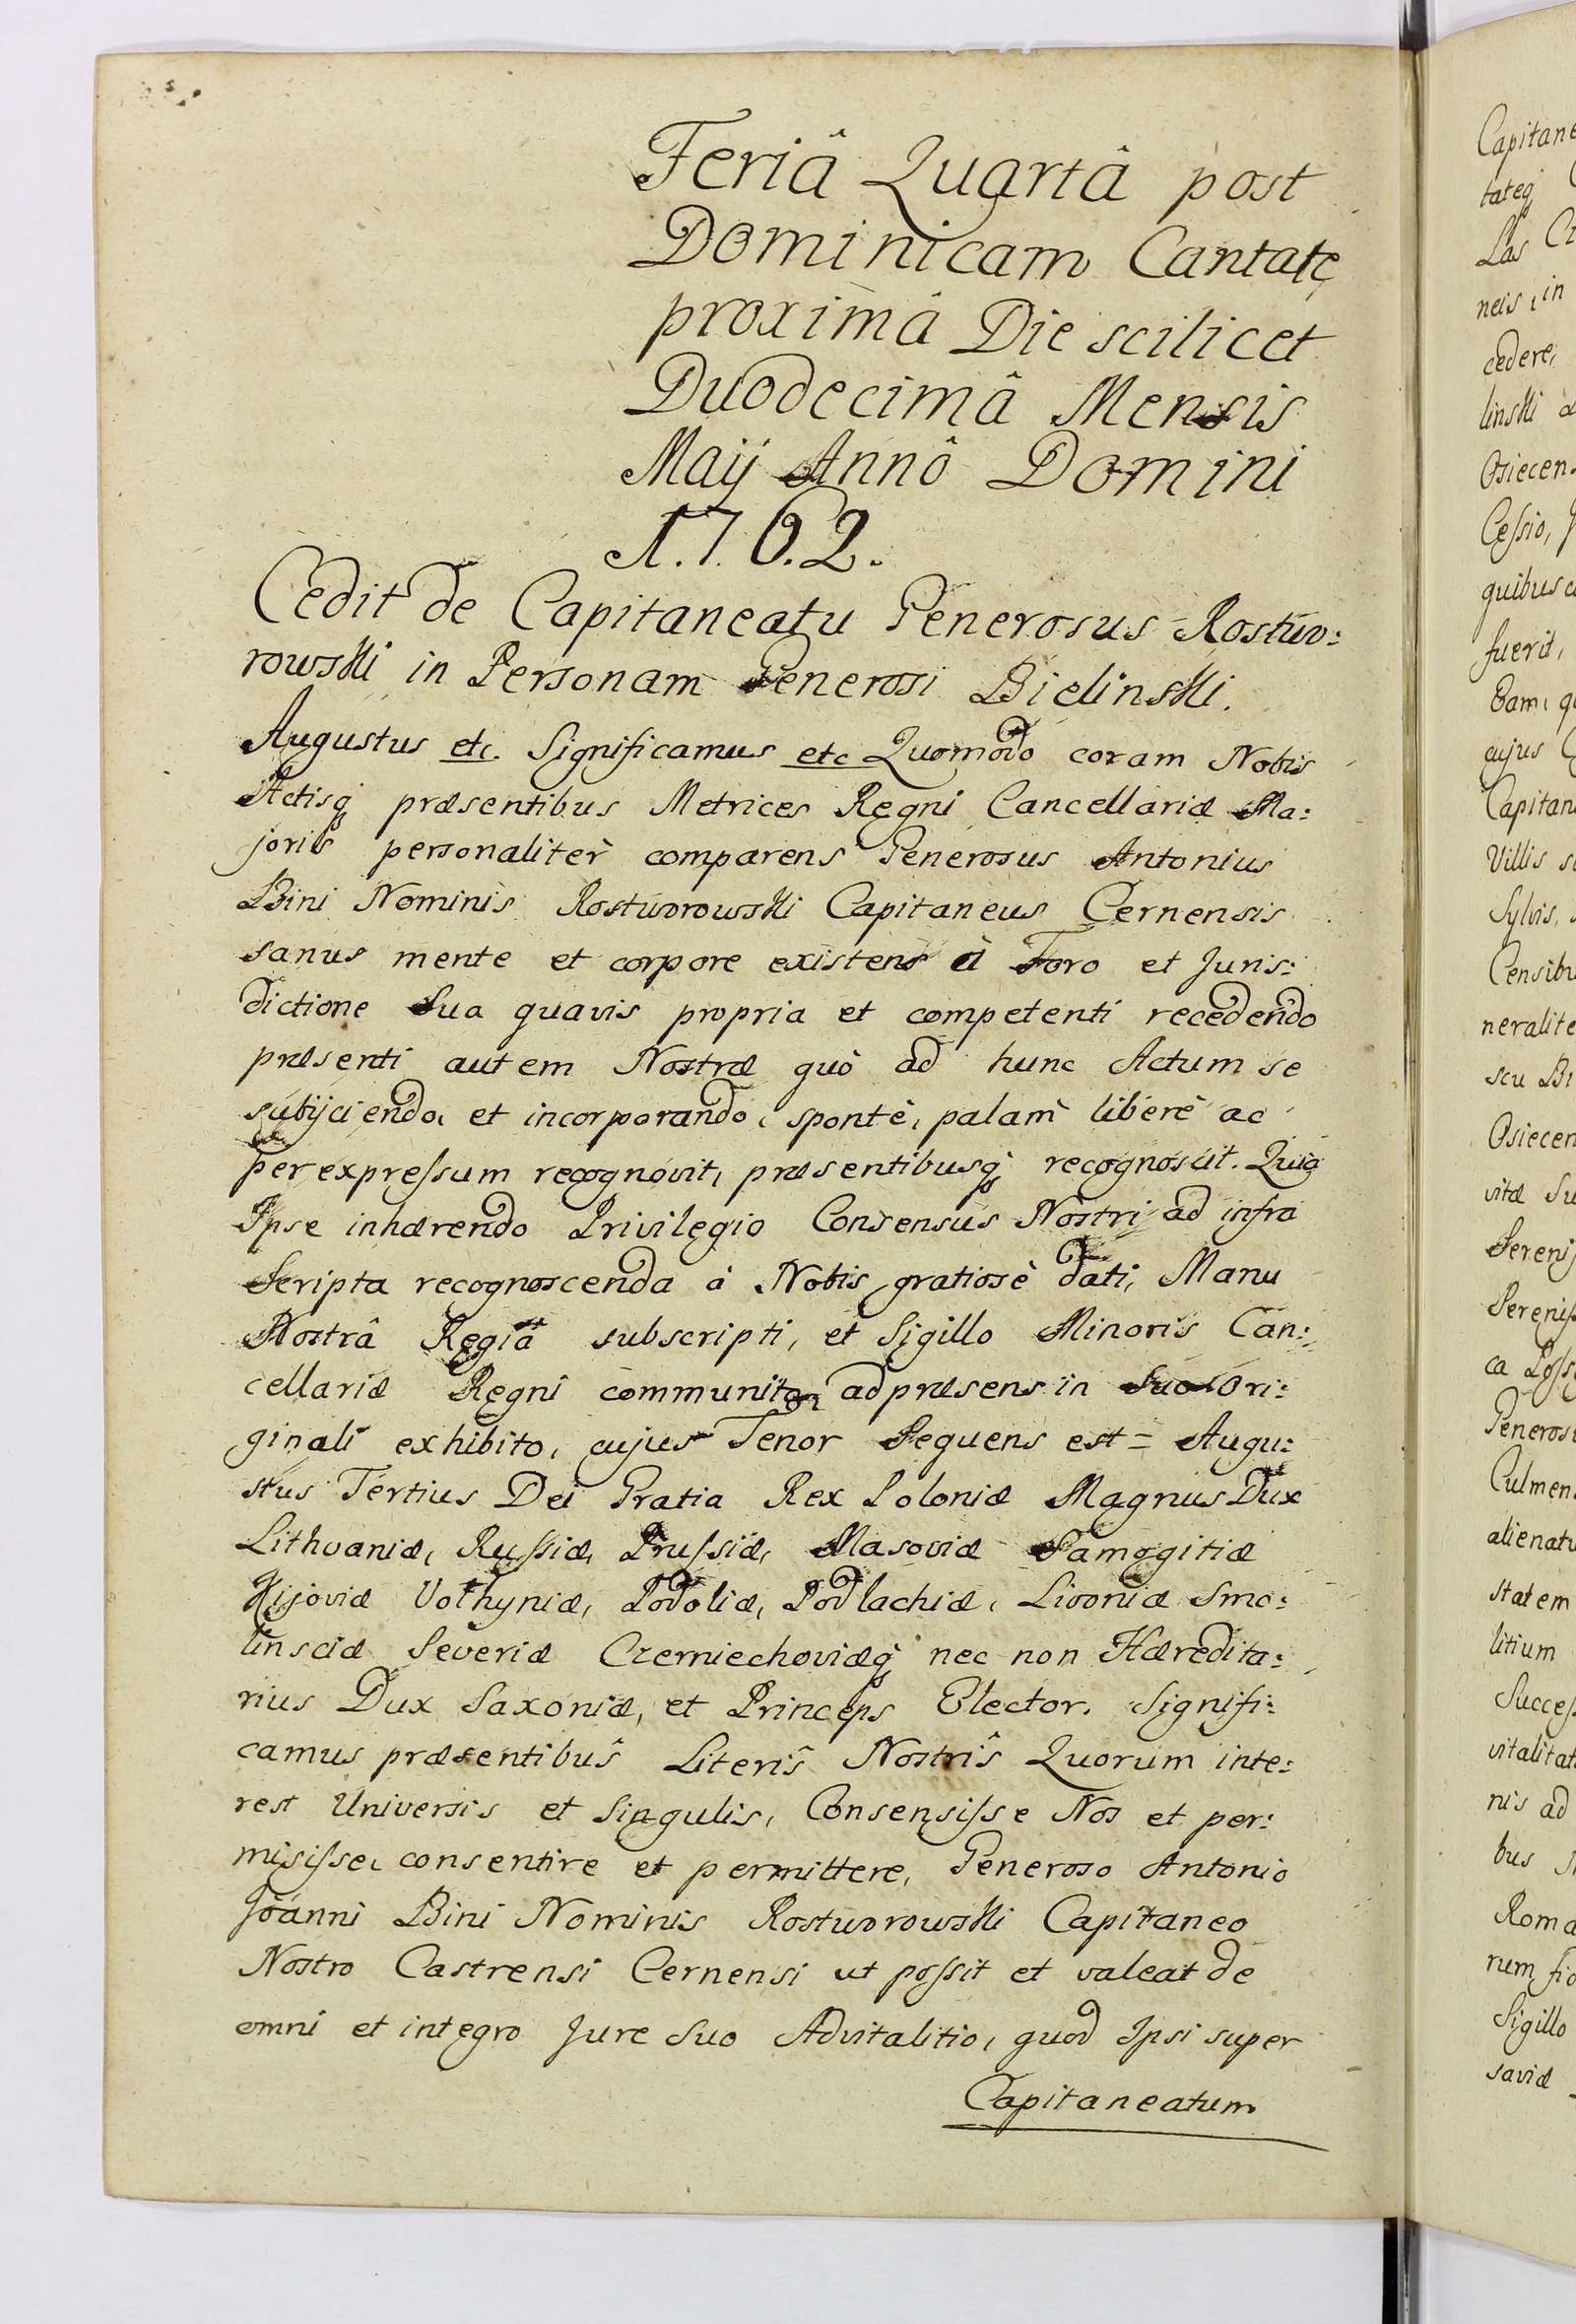 Feriâ Quartâ post
Dominicam Cantate
proximâ Die scilicet
Duodecimâ Mensis
Maij Annô Domini
1.7.6.2.
Cedit de Capitaneatu Generosus Rostwo:
rowski in Personam Generosi Bielinski.
Augustus etc. Significamus etc Quomodo coram Nobis
Actisq́ præsentibus Metrices Regni Cancellariæ Ma:
joris personalitèr comparens Generosus Antonius
Bini Nominis Rostworowski Capitaneus Cernensis
sanus mente et corpore existens à Foro et Juris:
dictione Sua quavis propria et competenti recedendo
præsenti autem Nostræ quò ad hunc Actum se
subijciendo, et incorporando, spontè, palam libere ac
per expreſsum recognovit, præsentibusq́ recognoscit. Quia
Ipse inhærendo Privilegio Consensus Nostri ad infra
Scripta recognoscenda à Nobis gratiosè dati, Manu
Nostrâ Regiâ subscripti, et Sigillo Minoris Can:
cellariæ Regni communito, ad præsens in Suo Ori:
ginali exhibito, cujus Tenor Sequens est = Augu:
stus Tertius Dei Gratia Rex Poloniæ Magnus Dux
Lithvaniæ, Ruſsiæ, Pruſsiæ, Masoviæ Samogitiæ
Kijoviæ Volhyniæ, Podoliæ, Podlachiæ, Livoniæ Smo:
linsciæ Severiæ Czerniechoviæq́ nec non Hæredita:
rius Dux Saxoniæ, et Princeps Elector. Signifi:
camus præsentibus Literis Nostris Quorum inte:
rest Universis et Singulis, Consensiſse Nos et per:
misiſse, consentire et permittere, Generoso Antonio
Joánni Bini Nominis Rostworowski Capitaneo
Nostro Castrensi Cernensi ut poſsit et valeat de
omni et integro Jure Suo Advitalitio, quod Ipsi super
Capitaneatum
Capitane
tateq́
Las
neis, in
cedere,
linski
Osiecen
Ceſsio,
quibus
fuerit,
Eam,
cujus
Capitan
Villis
Sylvis,
Censibu
neralite
seu Bi
Osiecen
vitæ Su
Sereniſ
Sereniſ
ca
Generos
Culmen
alienatu
statem
litium
Succeſ
vitalitat
nis ad
bus
Roma
rum
Sigillo
saviæ